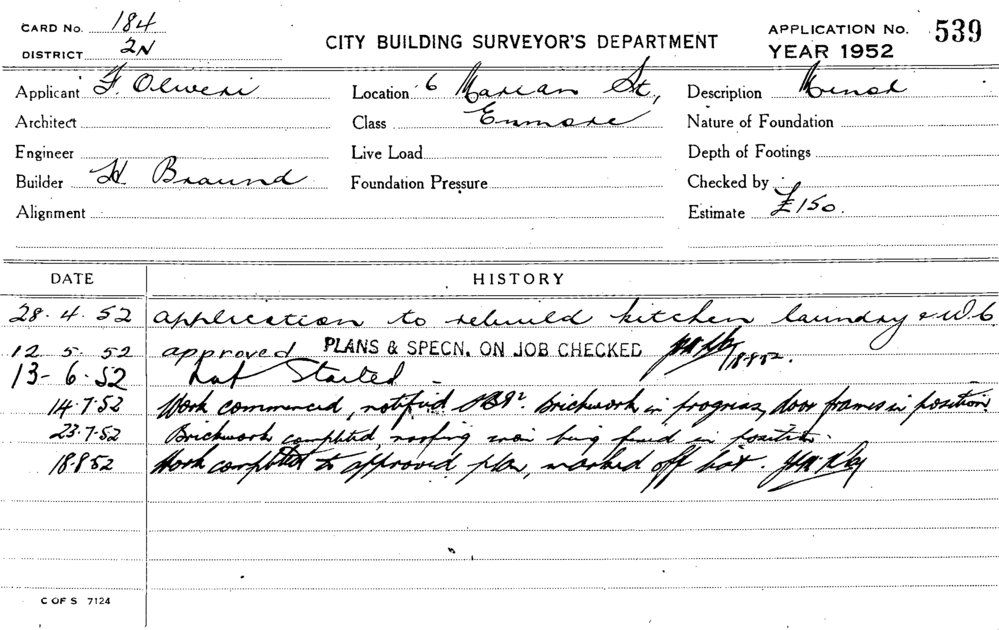 CARD No. 184
DISTRICT 2N
CITY BUILDING SURVEYOR'S DEPARTMENT
APPLICATION No. 539
YEAR 1952
Applicant F. Oliveri
Location 6 Marian St.,
Description Minor
Architect
Class Enmore
Nature of Foundation
Engineer
Live Load
Depth of Footings
Builder H Braund
Foundation Pressure
Checked by
Alignment
Estimate £150.
DATE HISTORY
28. 4. 52 application to rebuild kitchen laundry & W.C.
12 5. 52 approved PLANS & SPECN. ON JOB CHECKED 18.8.52.
13- 6. 52 Not Started -
14.7.52 Work commenced, notified Brickwork in progress, door frames in position
23.7.52 Brickwork completed, roofing iron being fixed in position.
18.8.52 Work completed to approved plan, marked off list.
C OF S 7124